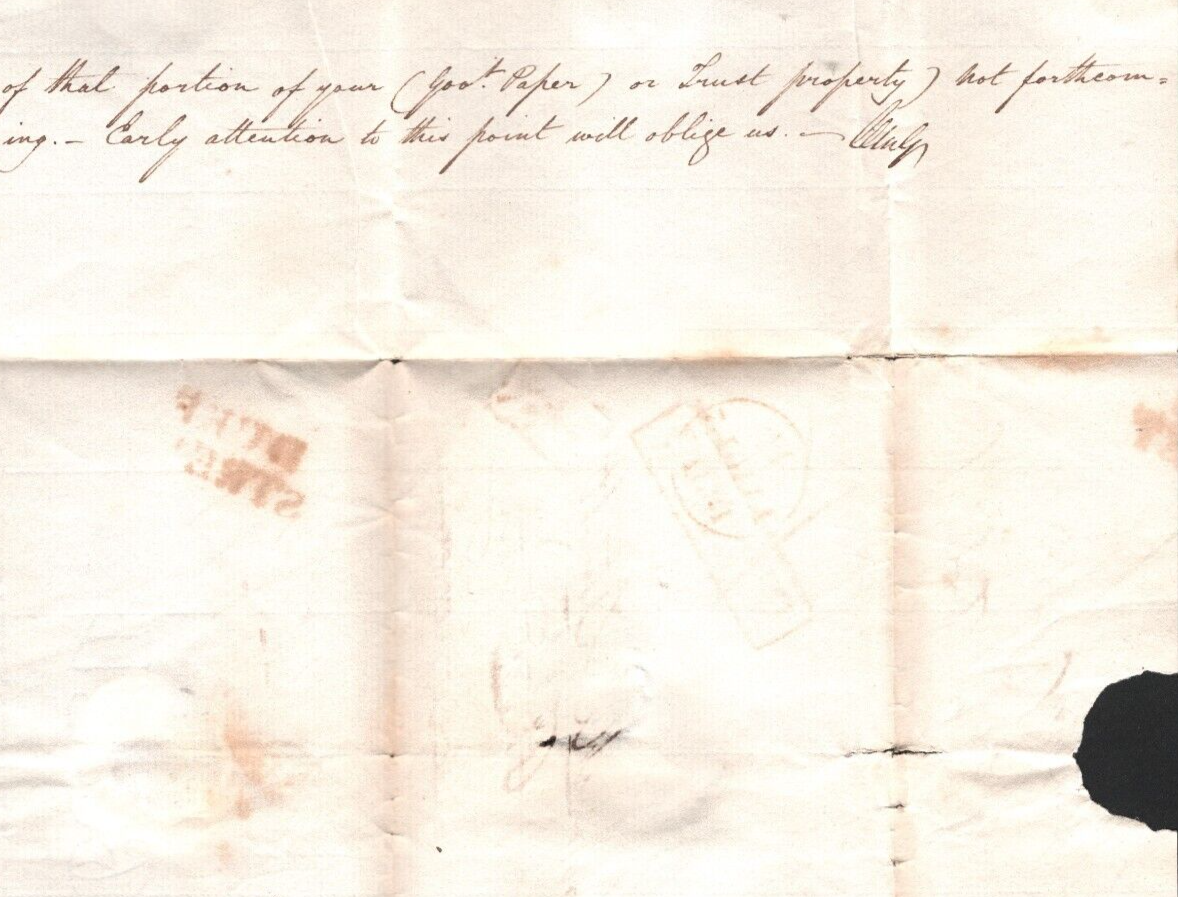 of that portion of your (Gov.t Paper) or Trust property) not forthcom=
ing. – Early attention to this point will oblige us. —